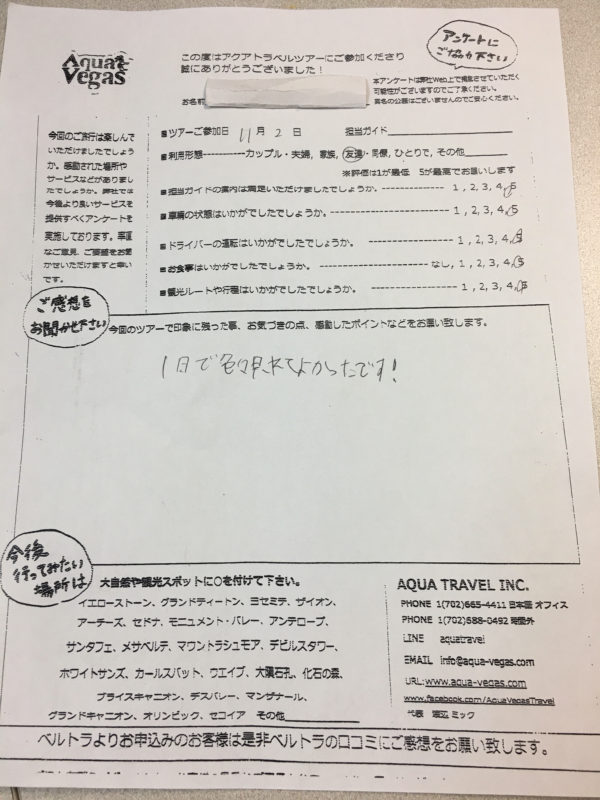 Aqua Vegas
この度はアクアトラベルツアーにご参加くださり
誠にありがとうございました！
アンケートに
ご協力下さい
本アンケートは弊社Web上で掲載させていただく
可能性がございますのでご了承ください。
実名の公開はございませんのでご安心ください。
お名前
今回のご旅行は楽しんで
いただけましたでしょう
か。感動された場所や
サービスなどがありまし
たでしょうか。弊社では
今後より良いサービスを
提供すべくアンケートを
実施しております。率直
なご意見、ご要望をお聞
かせいただけますと幸い
です。
■ツアーご参加日 11月 2 日 担当ガイド
■利用形態-----------カップル・夫婦, 家族, 友達・同僚, ひとりで, その他
※評価は1が最低 5が最高でお願いします
■担当ガイドの案内は満足いただけましたでしょうか。---------------- 1 , 2, 3, 4, 5
■車輌の状態はいかがでしたでしょうか。-------------------------- 1 , 2, 3, 4, 5
■ドライバーの運転はいかがでしたでしょうか。------------------ 1 , 2, 3, 4, 5
■お食事はいかがでしたでしょうか。-------------------- なし, 1 , 2, 3, 4, 5
■観光ルートや行程はいかがでしたでしょうか。------------------ 1 , 2, 3, 4, 5
ご感想を
お聞かせ下さい
今回のツアーで印象に残った事、お気づきの点、感動したポイントなどをお願い致します。
1日で色々見れてよかったです！
今後
行ってみたい
場所は
大自然や観光スポットに○を付けて下さい。
イエローストーン、グランドティートン、ヨセミテ、ザイオン、
アーチーズ、セドナ、モニュメント・バレー、アンテロープ、
サンタフェ、メサベルテ、マウントラシュモア、デビルスタワー、
ホワイトサンズ、カールスバット、ウエイブ、大隕石孔、化石の森、
ブライスキャニオン、デスバレー、マンザナール、
グランドキャニオン、オリンピック、セコイア その他
AQUA TRAVEL INC.
PHONE 1(702)665-4411 日本語 オフィス
PHONE 1(702)588-0492 時間外
LINE aquatravel
EMAIL info@aqua-vegas.com
URL:www.aqua-vegas.com
www.facebook.com/AquaVegasTravel
代表 渡辺 ミック
ベルトラよりお申込みのお客様は是非ベルトラの口コミにご感想をお願い致します。